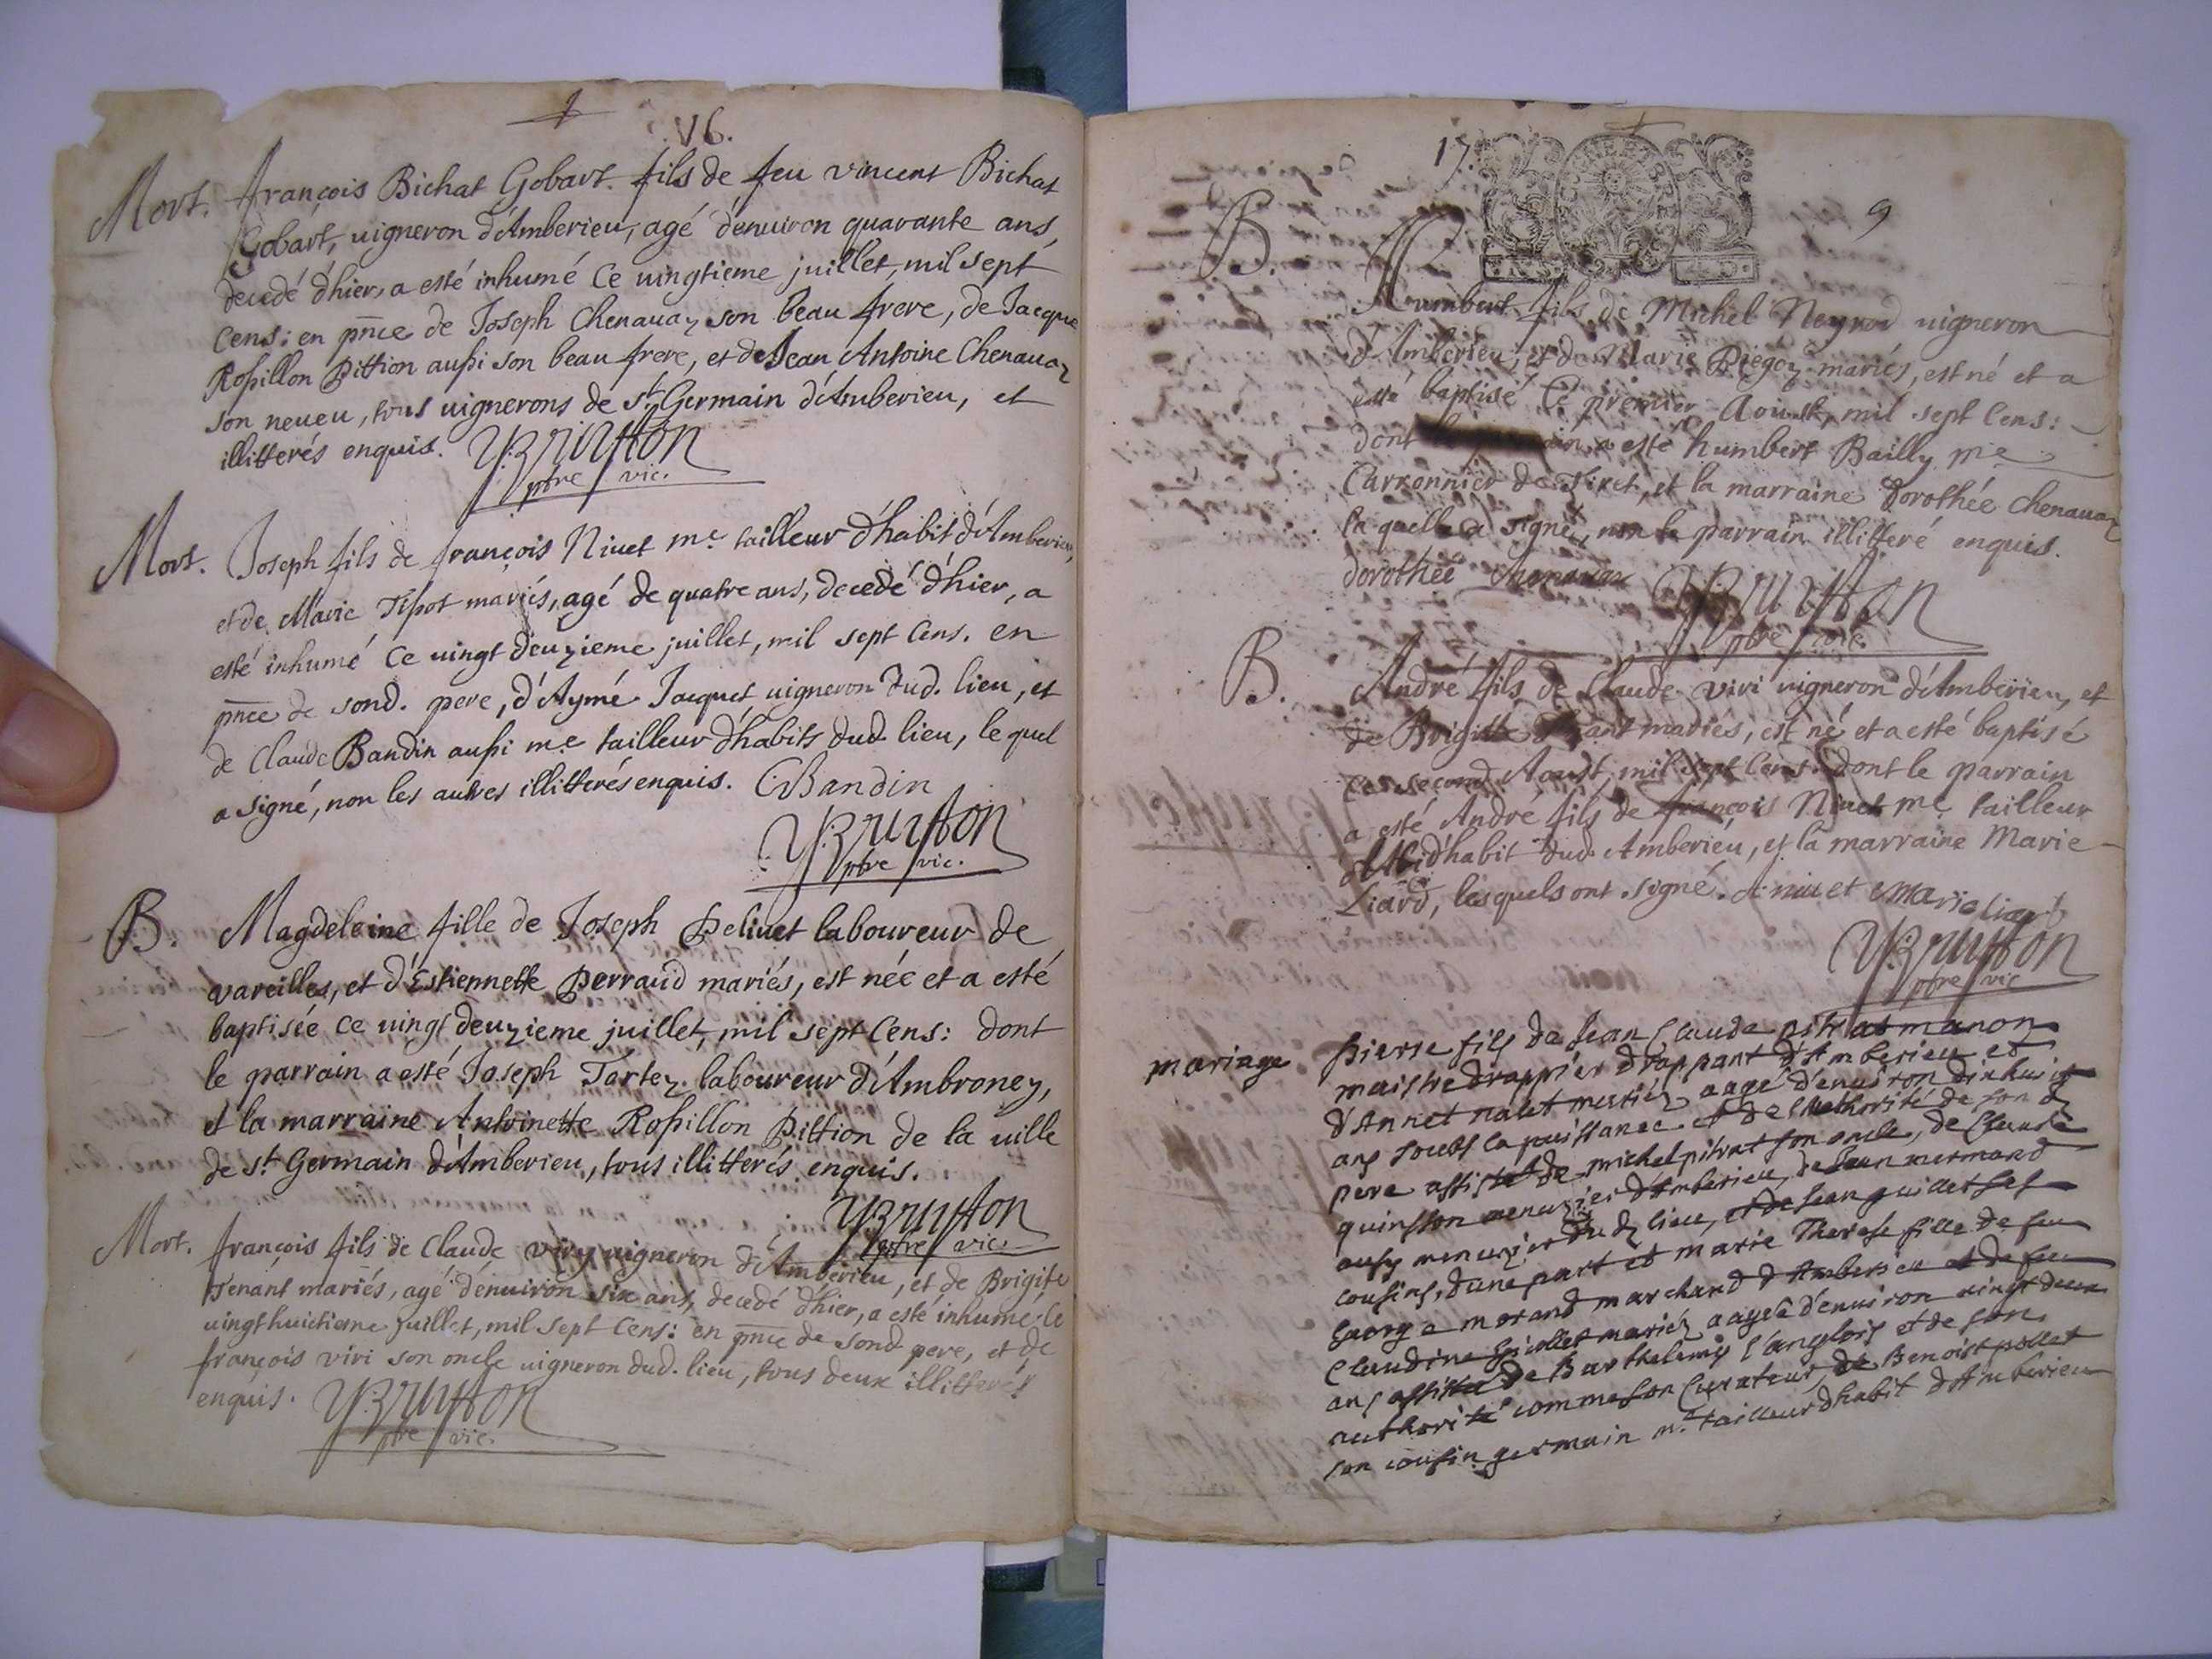 V6.
Mort. françois Bichat Gobart. fils de feu vincent Bichat
Gobart, uigneron d'Amberieu, agé d'enuiron quarante ans,
decedé d'hier, a esté inhumé Ce uingtieme juillet, mil sept
Cens: en pñce de Joseph Chenauaz son beau frere, de Jacque
Rossillon Pittion aussi son beau frere, et de Jean Antoine Chenauaz
son neueu, tous uignerons de st. Germain d'Amberieu, et
illitterés enquis.
pbre vic.
Mort. Joseph fils de françois Niuet me. tailleur d'habit d'Amberieu,
et de Marie Tipot mariés, agé de quatre ans, decedé d'hier, a
esté inhumé Ce uingt deuzieme juillet, mil sept Cens. en
pñce de sond. pere, d'Aymé Jacquet uigneron dud. lieu, et
de Claude Bandin aussi me. tailleur d'habits dud. lieu, le quel
a signé, non les autres illitterés enquis. C Bandin
pbre vic.
B. Magdeleine fille de Joseph Peliuet laboureur de
vareilles, et d'Estiennette Perraud mariés, est née et a esté
baptisée Ce uingt deuzieme juillet, mil sept Cens: dont
le parrain a esté Joseph Tartez laboureur d'Ambroney,
et la marraine Antoinette Rossillon Pittion de la uille
de st. Germain d'Amberieu, tous illitterés enquis.
pbre vic.
Mort. françois fils de Claude viry uigneron d'Amberieu, et de Brigite
Tenant mariés, agé d'enuiron six ans, decedé d'hier, a esté inhumé le
uingt huictieme juillet, mil sept Cens: en pñce de sond pere, et de
françois viri son oncle uigneron dud. lieu, tous deux illitterés
enquis.
pbre vic.
17.
9
B. Humbert fils de Michel Neyrod uigneron
d'Amberieu, et de Marie Piegoz mariés, est né et a
esté baptisé Ce premier Aoust, mil sept Cens:
dont a esté humbert Bailly me
Carronnier de Tiret, et la marraine Dorothée Chenauaz
la quelle a signé, non le parrain illitteré enquis.
dorothée chenauaz
pbre vic.
B. André fils de Claude viri uigneron d'Amberieu, et
de Brigitte Tenant mariés, est né et a esté baptisé
Ce second Aoust, mil sept Cens: dont le parrain
a esté André fils de françois Niuet me. tailleur
d'habit dud. Amberieu, et la marraine Marie
Liard, lesquels ont signé. A niuet marie liard
pbre vic
mariage pierre fils de Jean Claude pitrat manon
maistre drappier drappant d'Amberieu et
d'Annet nalet mariez aagé d'enuiron dixhuict
ans soubs la puissance et de l'Authorité de son d
pere assisté de michel pitrat son oncle, de Claude
quinsson menuzier d'Amberieu, de Jean mermand
aussy menuzier du d lieu, et de Jean guillet ses
cousins, d'une part et marie Therese fille de feu
george morand marchand d'Amberieu et de feu
Claudine mariez aagée d'enuiron uingt deux
ans assistée de Barthelemy l'anglois et de son
authorité comme son Curateur, de Benoist pollet
son cousin germain me. tailleur d'habit d'Amberieu